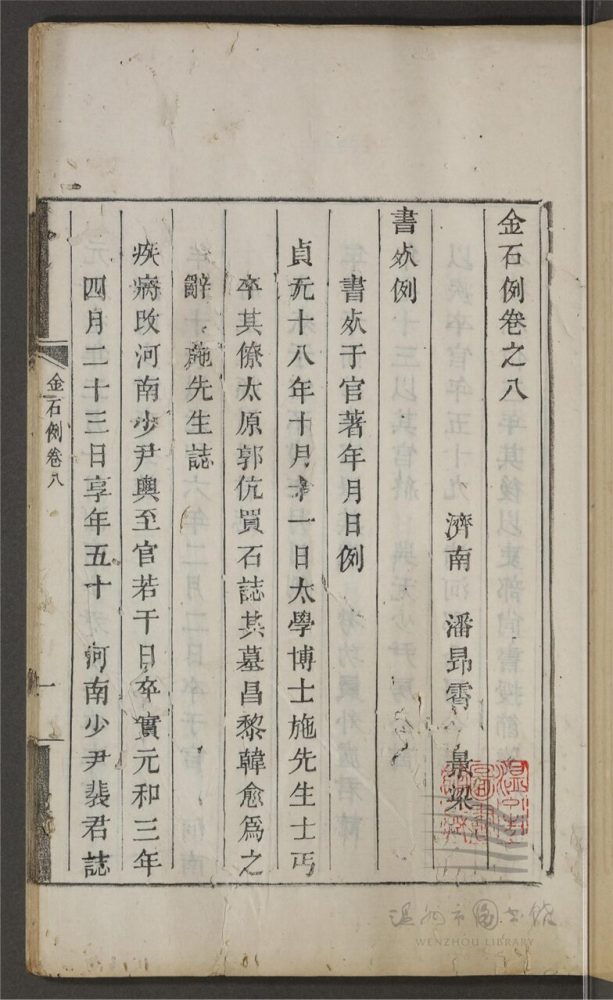 金石例卷之八
濟南 潘昂霄 景梁
書𣦸例
書𣦸于官著年月日例
貞元十八年十月十一日太學博士施先生士丐
卒其僚太原郭伉買石誌其墓昌黎韓愈爲之
辭 施先生誌
疾病改河南少尹輿至官若干日卒實元和三年
四月二十三日享年五十 河南少尹裴君誌
金石例卷八
一
温州市图书馆
WENZHOU LIBRARY